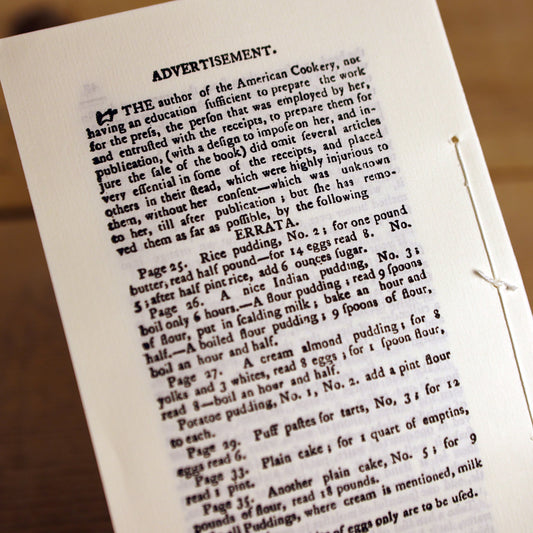 ADVERTISEMENT.
☛ THE author of the American Cookery, not
having an education ſufficient to prepare the work
for the preſs, the perſon that was employed by her,
and entruſted with the receipts, to prepare them for
publication, (with a deſign to impoſe on her, and in-
jure the ſale of the book) did omit ſeveral articles
very eſſential in ſome of the receipts, and placed
others in their ſtead, which were highly injurious to
them, without her conſent—which was unknown
to her, till after publication; but ſhe has remo-
ved them as far as poſſible, by the following
ERRATA.
Page 25. Rice pudding, No. 2; for one pound
butter, read half pound—for 14 eggs read 8. No.
5; after half pint rice, add 6 ounces ſugar.
Page 26. A nice Indian pudding, No. 3;
boil only 6 hours.—A flour pudding; read 9 ſpoons
of flour, put in ſcalding milk; bake an hour and
half.—A boiled flour pudding; 9 ſpoons of flour,
boil an hour and half.
Page 27. A cream almond pudding; for 8
yolks and 3 whites, read 8 eggs; for 1 ſpoon flour,
read 8—boil an hour and half.
Potatoe pudding, No. 1, No. 2. add a pint flour
to each.
Page 29. Puff paſtes for tarts, No, 3; for 12
eggs read 6.
Page 33. Plain cake; for 1 quart of emptins,
read 1 pint.
Page 35. Another plain cake, No. 5; for 9
pounds of flour, read 18 pounds.
all Puddings, where cream is mentioned, milk
of eggs only are to be uſed.